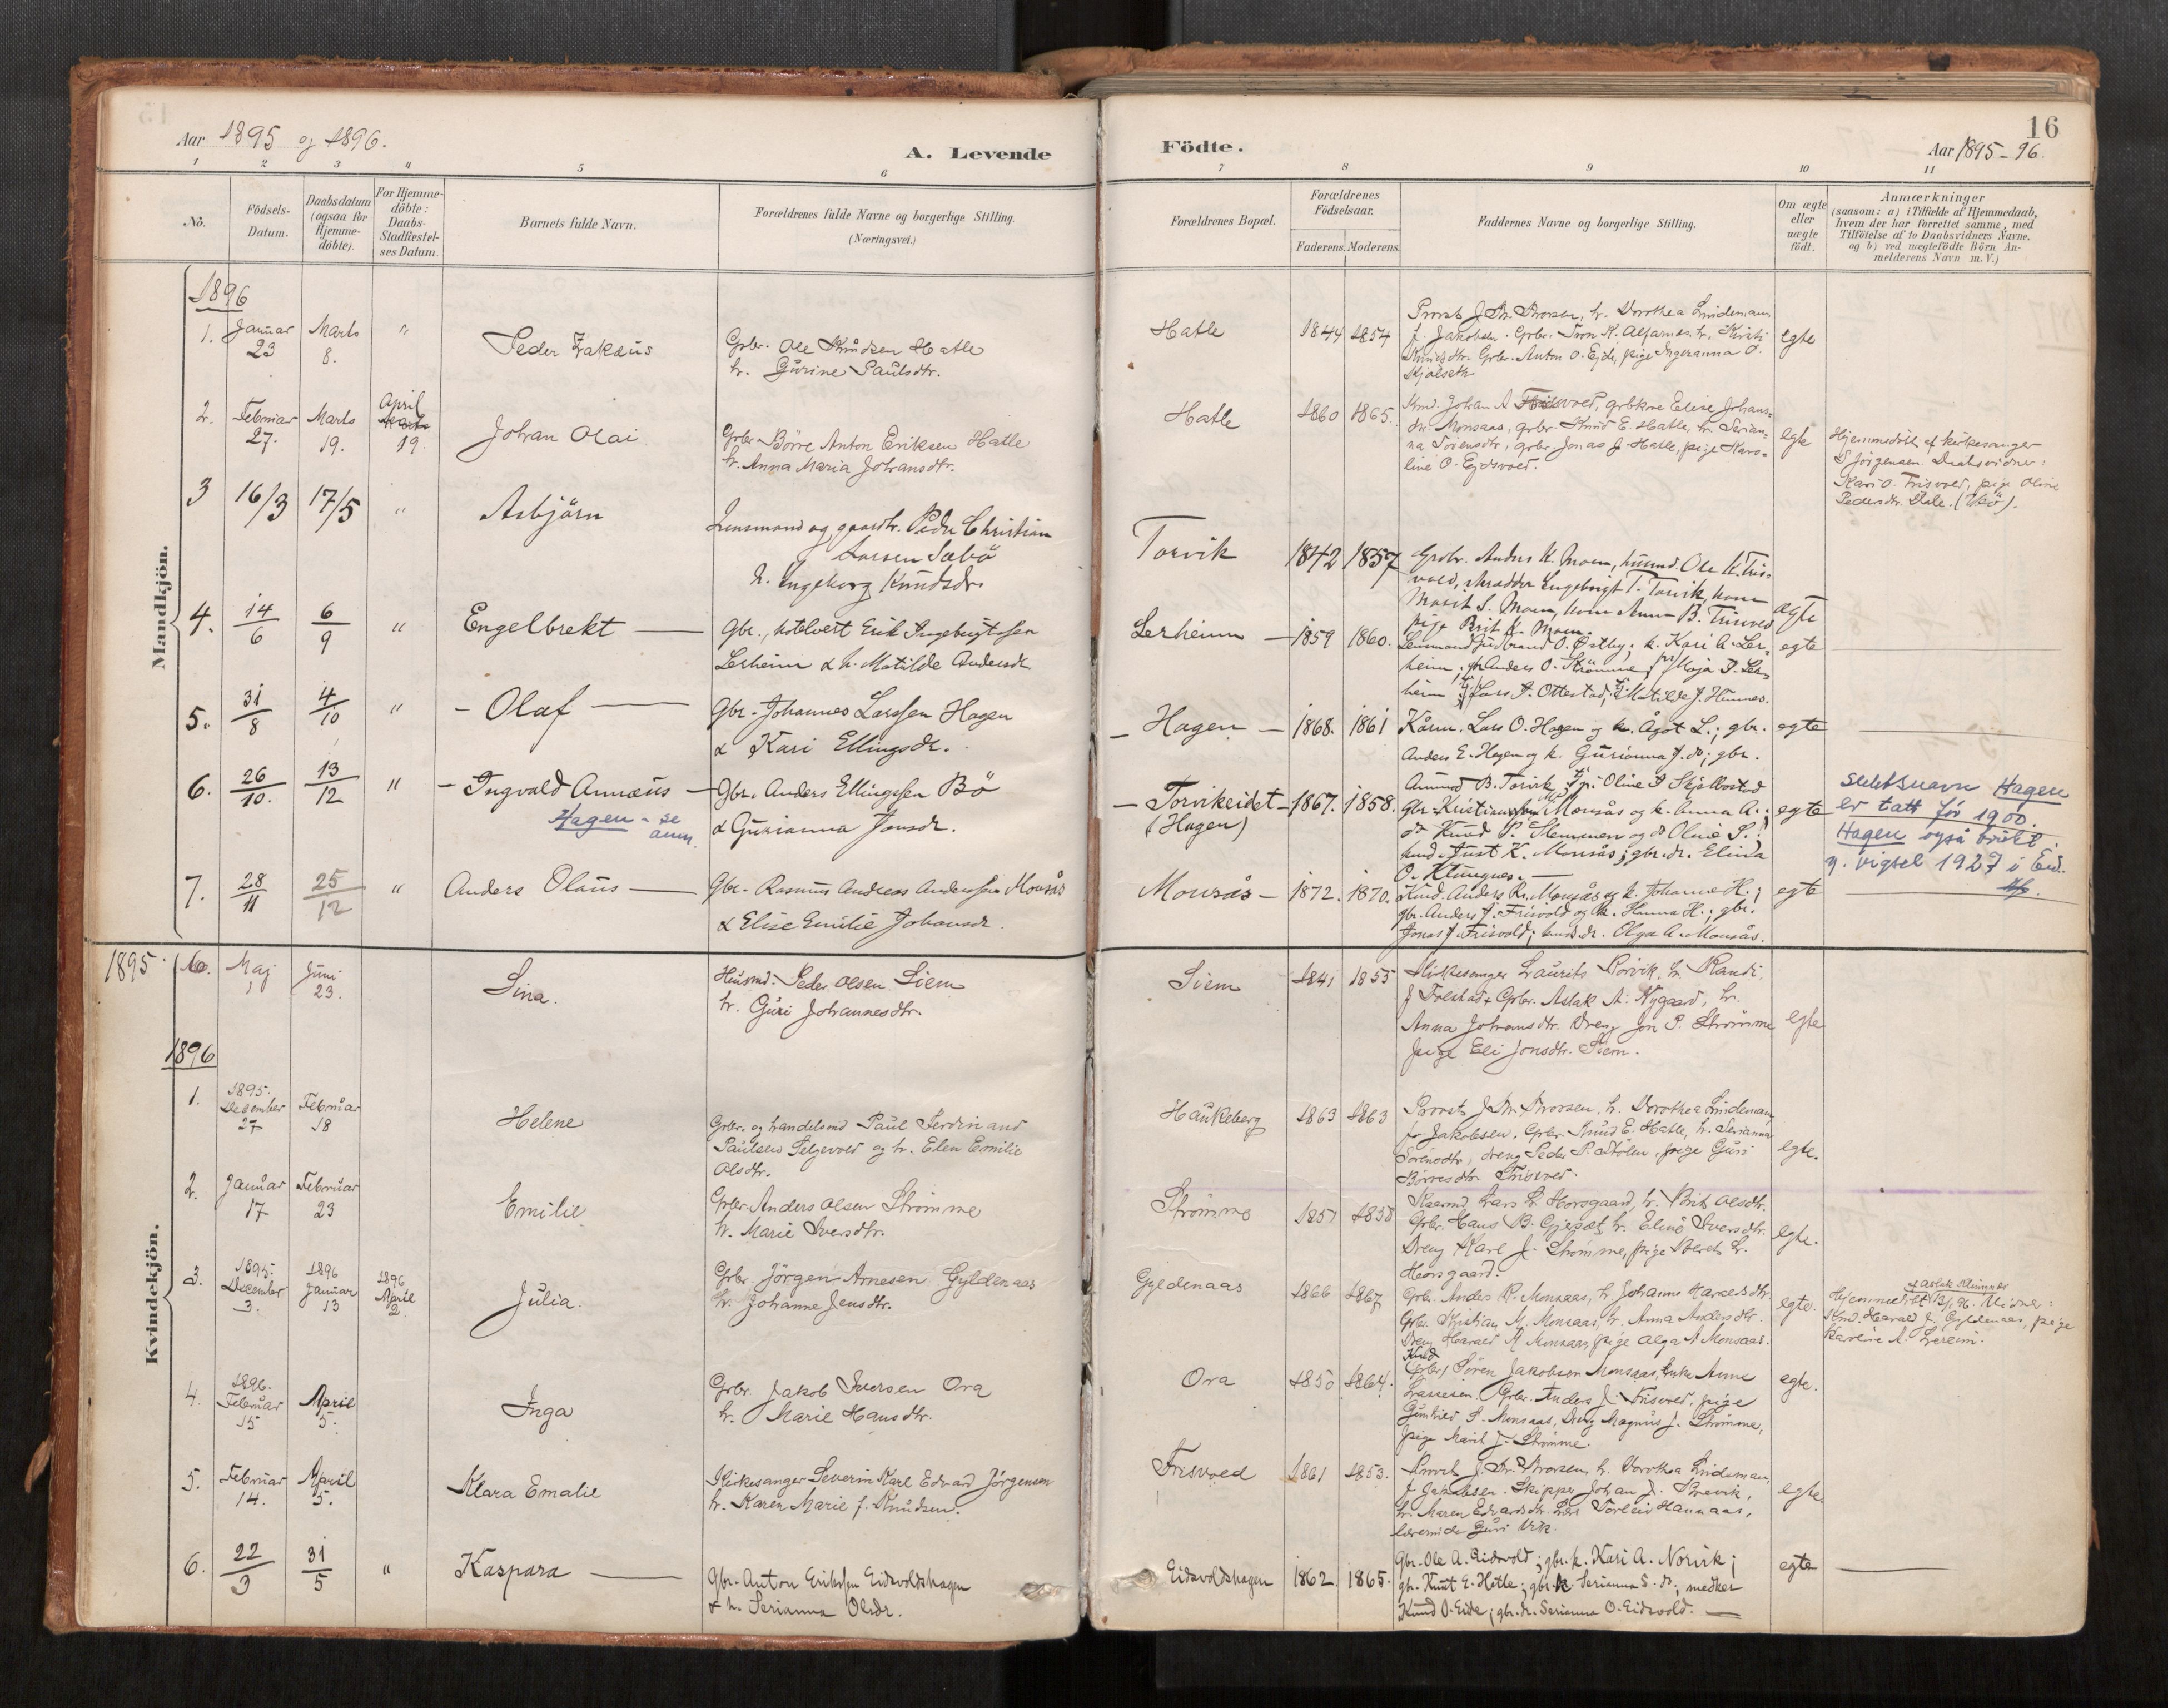 Aar 1895 og 1896.
A. Levende
1 2 3 4 5 6
No.
Födsels-Datum.
Daabsdatum (ogsaa for Hjemme-döbte).
For Hjemme-döbte: Daabs-Stadfæstel-ses Datum.
Barnets fulde Navn.
Forældrenes fulde Navne og borgerlige Stilling.
(Næringsvei.)
Födte.
16
Aar 1895-96.
7 8 9 10 11
Forældrenes Bopæl.
Forældrenes Födselsaar.
Faderens. Moderens.
Faddernes Navne og borgerlige Stilling.
Om ægte eller uægte födt.
Anmærkninger
(saasom: a) i Tilfælde af Hjemmedaab,
hvem der har forrettet samme, med
Tilföielse af to Daabsvidners Navne,
og b) ved uægtefödte Börn An-
melderens Navn m. V.)
Mandkjön.
1896
1. Januar 23 Marts 8. " Peder Zakæus
Gbr. Ole Knudsen Hatle
h. Gurine Paulsdtr.
Hatle 1844 1854
Provst J. Chr. Brorsen, h. Dorothea Lindeman
f. Jakobsen. Grbr. Iver K. Alfarnes, h. Kirsti
Knudsdtr. Grbr. Anton O. Ejde, pige Ingeranna O.
Skjølseth
egte
2. Februar 27. Marts 19. April 19. Johan Olai
Grbr. Börre Anton Eriksen Hatle
h. Anna Maria Johansdtr.
Hatle 1860 1865.
Kmd. Johan A Frisvold, grbkone Elise Johans=
dtr. Monsaas, grbr. Knud E. Hatle, h. Serian=
na Sørensdtr, grbr. Jonas J. Hatle, pige Karo=
line O. Ejdsvold.
egte
Hjemmedöbt af kirkesanger
S Jörgensen. Daabsvidner:
Kari O. Frisvold, pige Oline
Pedersdtr. Dale. (Veö).
3 16/3 17/5 " Asbjörn
Lensmand og gaardbr. Peder Christian
Larsen Sæbö
h. Ingeborg Knudsdr.
Torvik 1842 1857
Grdbr. Anders K. Moen, husmd. Ole K. Fris=
vold, skrædder Engebrigt T. Torvik, kone
Marit S. Moen, kone Anna B. Frisvold
pige Brit K. Moen.
ægte
4. 14/6 6/9 " Engelbrekt
Gbr., hotelvert Erik Ingebrigtssen
Lerheim & h. Matilde Andersdr.
Lerheim 1859 1860.
Lensmand Gudbrand O. Østby; k. Kari A. Ler=
heim; gbr Anders O. Strömme; pi. Maja P. Ler=
heim; Lars A. Ottestad; Matilde J. Himnes.
egte
5. 31/8 4/10 " - Olaf
Gbr. Johannes Larssen Hagen
& Kari Ellingsdr.
Hagen 1868. 1861
Kårm. Lars O. Hagen og k. Ågot L.; gbr.
Anders E. Hagen og k. Gurianna J. dr; gbr.
Ammod B. Torvik; pi. Oline P Skjelbostad
egte
6. 26/10. 13/12 " - Ingvald Annæus
Hagen - se anm.
Gbr. Anders Ellingssen Bö
& Gurianna Jonsdr.
Torvikeidet (Hagen) 1867. 1858.
Gbr. Kristian Monsås og k. Anna A.;
do Knud P. Slemmen og do Oline P.;
kmd. Just K. Monsås; gbr. dr. Elina
O. Klungnes.
egte
Slektsnavn Hagen
er tatt før 1900.
Hagen også brukt
v. vigsel 1927 i Eid.
7. 28/11 25/12 " Anders Olaus
Gbr. Rasmus Andreas Anderssen Monsås
& Elise Emilie Johansdr.
Monsås 1872. 1870.
Kmd. Anders R. Monsås og k. Johanne H.;
gbr. Anders J. Frisvold og k. Hanna H.; gbr.
Jonas J. Frisvold; kmd. dr. Olga A. Monsås.
egte
Kvindekjön.
1895 10. Maj 1 Juni 23. Lina.
Husmd. Peder Olsen Siem
h. Guri Johannesdtr.
Siem 1841 1855
Kirkesanger Laurits Rørvik, h. Randi
J Frestad, Grbr. Aslak A. Nygaard, h.
Anna Johansdtr. Dreng Jon P. Strömme
Pige Eli Jonsdtr. Siem.
egte
1896
1. 1895. December 27 Februar 18 Helene
Grbr. og handelsmd Paul Ferdinand
Paulsen Seljevold og h. Elen Emilie
Olsdtr.
Haukeberg 1863 1863
Provst J. Chr. Brorsen, h. Dorothea Lindeman,
f. Jakobsen, Grbr. Knud E. Hatle, h. Serianna
Sorensdtr, dreng Peder P. Stölen, pige Guri
Börresdtr. Frisvold.
egte.
2. Januar 17 Februar 23 Emilie
Grbr Anders Olsen Strömme
h. Marie Iversdtr.
Strömme 1857 1858
Kaarmd. Lars L. Horsgaard, h. Brit Olsdtr.
Grbr. Hans B. Gjegset, h. Eline Iversdtr.
Dreng Karl J. Strömme, pige Beret L.
Horsgaard.
egte.
3. 1895. December 3. 1896 Januar 13 1896 April 2 Julia.
Grbr. Jörgen Arnesen Gyldenaas
h. Johanne Jensdtr.
Gyldenaas 1866 1867
Grbr. Anders R. Monsaas, h. Johanne Haraldsdtr
Grbr. Kristian M. Monsaas, h. Anna Andersdtr.
Dreng Harald A Monsaas, pige Olga A Monsaas.
egte.
af Aslak Himnæs
Hjemmedöbt 13/1 96. Vidner:
Kmd. Harald J. Gyldenaas, pige
Karoline A. Lereim.
4. 1896. Februar 15 April 5. Inga
Grbr. Jakob Iversen Ora
h. Marie Hansdtr.
Ora 1850 1864.
Kmd
Grbr, Søren Jakobsen Monsaas, enke Anne
Larsen. Grbr. Anders J. Frisvold, pige
Gunhild S. Monsaas, Dreng Magnus J. Strömme,
pige Marit J. Strömme.
egte.
5. Februar 14. April 5. Klara Emalie
Kirkesanger Severin Karl Edvard Jörgensen
h. Karen Marie f. Knudsen.
Frisvold 1861 1853.
Provst J. Chr. Brorsen, h. Dorothea Lindeman,
f Jakobsen. Skipper Johan J. Brevik,
h. Maren Edvardsdtr. Lærer Torleiv Hannaas,
lærerinde Guri Vik.
egte.
6. 22/3 31/5 " Kaspara
Gbr. Anton Erikssen Eidsvoldshagen
& h. Serianna Olsdr.
Eidsvoldshagen 1862. 1865.
Gbr. Ole A. Eidsvold; gbr. k. Kari A. Norvik;
gbr. Knut E. Hatle; gbr. k. Serianna S. dr; medker
Knud O. Eide; gbr. dr. Serianna O. Eidsvold.
egte